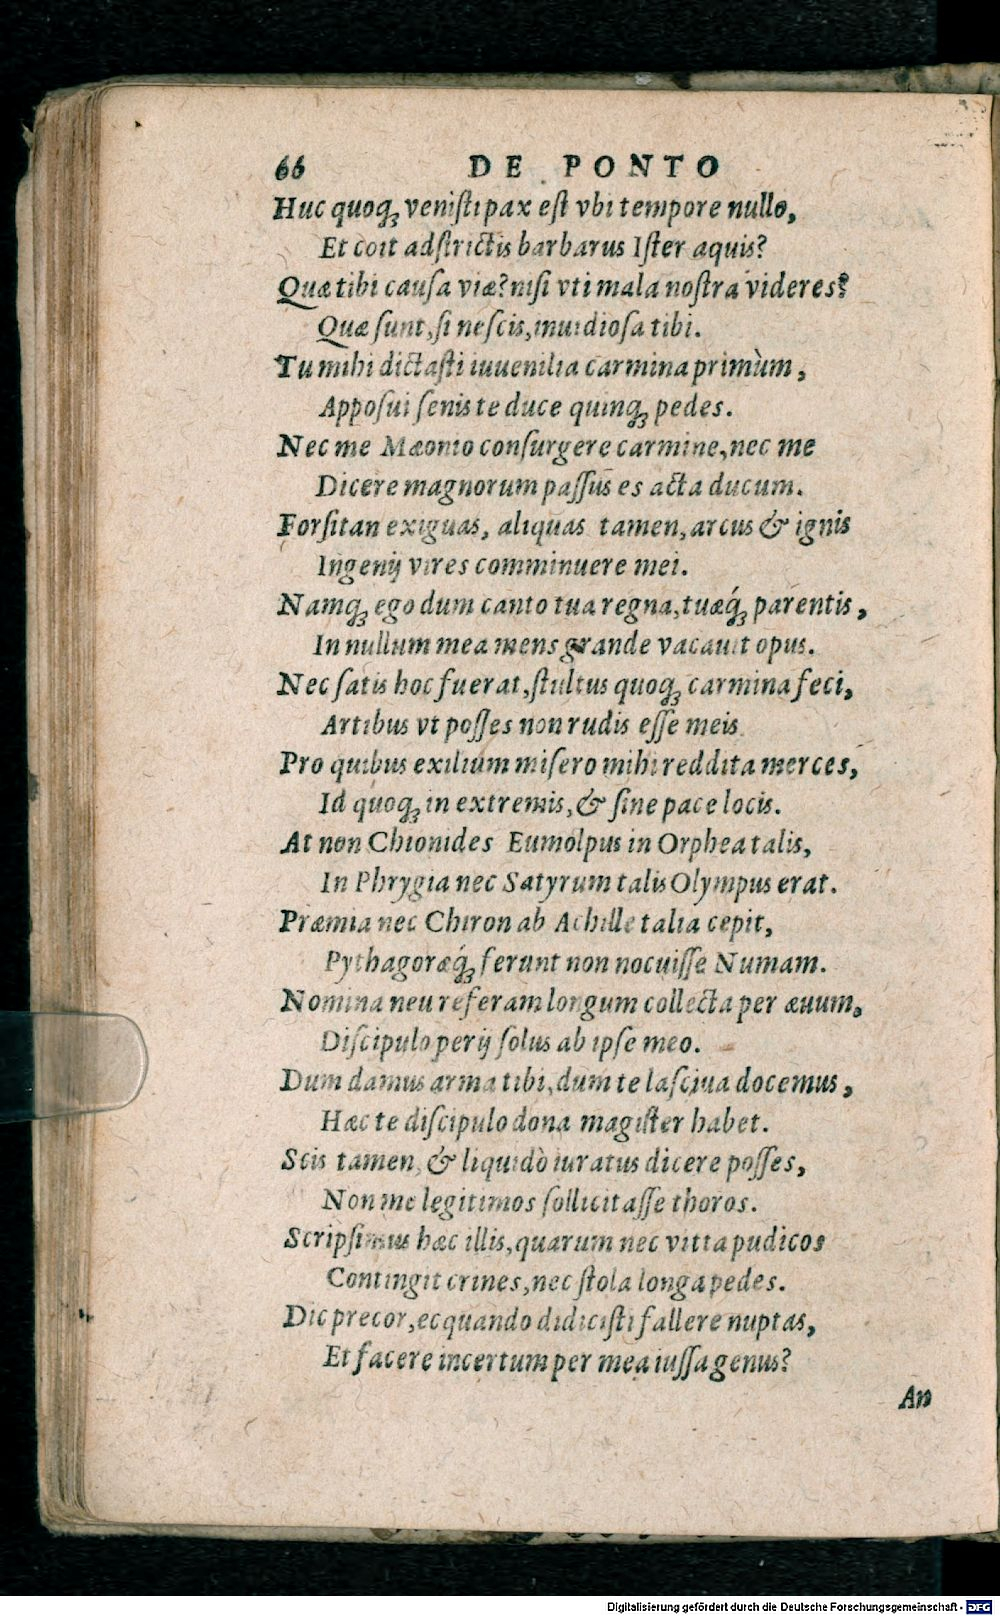 66 DE PONTO
Huc quoq́ꝫ veniſti pax eſt vbi tempore nullo,
Et coit adſtrictis barbarus Iſter aquis?
Quæ tibi cauſa viæ? niſi vti mala noſtra videres?
Quæ ſunt, ſi neſcis, inuidioſa tibi.
Tu mihi dictaſti iuuenilia carmina primùm,
Appoſui ſenis te duce quinqꝫ pedes.
Nec me Mæonio conſurgere carmine, nec me
Dicere magnorum paſſus es acta ducum.
Forſitan exiguas, aliquas tamen, arcus & ignis
Ingenij vires comminuere mei.
Namqꝫ ego dum canto tua regna, tuæq́ꝫ parentis,
In nullum mea mens grande vacauit opus.
Nec ſatis hoc fuerat, ſtultus quoqꝫ carmina feci,
Artibus vt poſſes non rudis eſſe meis
Pro quibus exilium miſero mihi reddita merces,
Id quoqꝫ in extremis, & ſine pace locis.
At non Chionides Eumolpus in Orphea talis,
In Phrygia nec Satyrum talis Olympus erat.
Præmia nec Chiron ab Achille talia cepit,
Pythagoræq́ꝫ ferunt non nocuiſſe Numam.
Nomina neu referam longum collecta per æuum,
Diſcipulo perij ſolus ab ipſe meo.
Dum damus arma tibi, dum te laſciua docemus,
Hæc te diſcipulo dona magiſter habet.
Scis tamen, & liquidò iuratus dicere poſſes,
Non me legitimos ſollicitaſſe thoros.
Scripſimus hæc illis, quarum nec vitta pudicos
Contingit crines, nec ſtola longa pedes.
Dic precor, ecquando didiciſti fallere nuptas,
Et facere incertum per mea iuſſa genus?
An
Digitalisierung gefördert durch die Deutsche Forschungsgemeinschaft - DFG